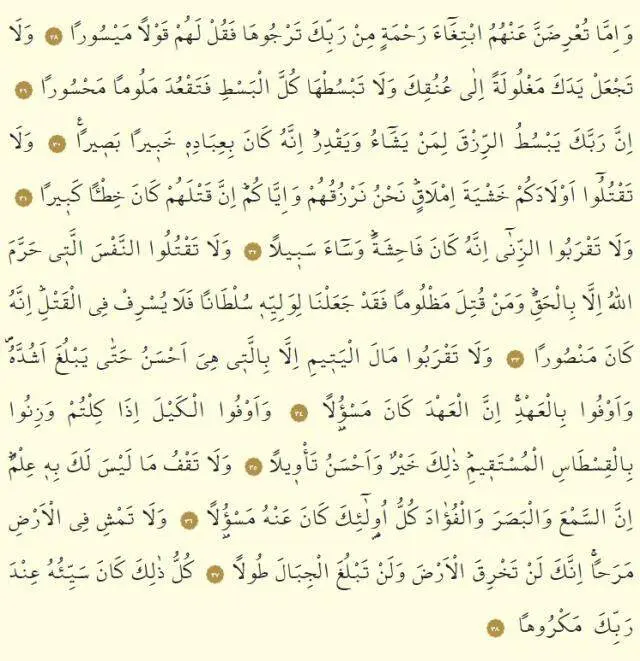 وَاِمَّا تُعْرِضَنَّ عَنْهُمُ ابْتِغَٓاءَ رَحْمَةٍ مِنْ رَبِّكَ تَرْجُوهَا فَقُلْ لَهُمْ قَوْلًا مَيْسُورًا ﴿٢٨﴾ وَلَا
تَجْعَلْ يَدَكَ مَغْلُولَةً اِلٰى عُنُقِكَ وَلَا تَبْسُطْهَا كُلَّ الْبَسْطِ فَتَقْعُدَ مَلُومًا مَحْسُورًا ﴿٢٩﴾
اِنَّ رَبَّكَ يَبْسُطُ الرِّزْقَ لِمَنْ يَشَٓاءُ وَيَقْدِرُۜ اِنَّهُ كَانَ بِعِبَادِه۪ خَب۪يرًا بَص۪يرًا۟ ﴿٣٠﴾ وَلَا
تَقْتُلُٓوا اَوْلَادَكُمْ خَشْيَةَ اِمْلَاقٍۜ نَحْنُ نَرْزُقُهُمْ وَاِيَّاكُمْۜ اِنَّ قَتْلَهُمْ كَانَ خِطْـًٔا كَب۪يرًا ﴿٣١﴾
وَلَا تَقْرَبُوا الزِّنٰٓى اِنَّهُ كَانَ فَاحِشَةًۜ وَسَٓاءَ سَب۪يلًا ﴿٣٢﴾ وَلَا تَقْتُلُوا النَّفْسَ الَّت۪ي حَرَّمَ
اللّٰهُ اِلَّا بِالْحَقِّۜ وَمَنْ قُتِلَ مَظْلُومًا فَقَدْ جَعَلْنَا لِوَلِيِّه۪ سُلْطَانًا فَلَا يُسْرِفْ فِي الْقَتْلِۜ اِنَّهُ
كَانَ مَنْصُورًا ﴿٣٣﴾ وَلَا تَقْرَبُوا مَالَ الْيَت۪يمِ اِلَّا بِالَّت۪ي هِيَ اَحْسَنُ حَتّٰى يَبْلُغَ اَشُدَّهُۖ
وَاَوْفُوا بِالْعَهْدِۚ اِنَّ الْعَهْدَ كَانَ مَسْؤُ۫لًا ﴿٣٤﴾ وَاَوْفُوا الْكَيْلَ اِذَا كِلْتُمْ وَزِنُوا
بِالْقِسْطَاسِ الْمُسْتَق۪يمِۜ ذٰلِكَ خَيْرٌ وَاَحْسَنُ تَأْو۪يلًا ﴿٣٥﴾ وَلَا تَقْفُ مَا لَيْسَ لَكَ بِه۪ عِلْمٌۜ
اِنَّ السَّمْعَ وَالْبَصَرَ وَالْفُؤٰادَ كُلُّ اُو۬لٰٓئِكَ كَانَ عَنْهُ مَسْؤُ۫لًا ﴿٣٦﴾ وَلَا تَمْشِ فِي الْاَرْضِ
مَرَحًاۚ اِنَّكَ لَنْ تَخْرِقَ الْاَرْضَ وَلَنْ تَبْلُغَ الْجِبَالَ طُولًا ﴿٣٧﴾ كُلُّ ذٰلِكَ كَانَ سَيِّئُهُ عِنْدَ
رَبِّكَ مَكْرُوهًا ﴿٣٨﴾